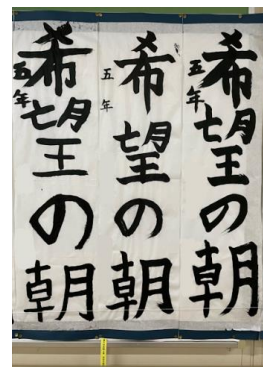 希望の朝
五年
希望の朝
五年
希望の朝
五年